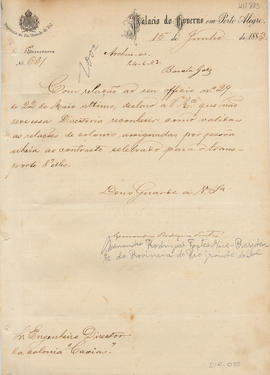 Palacio do Governo em Porto Alegre,
15 de Junho de 188
Nº 651
Com relação ao seu officio nº 29
de 22 de Maio ultimo, declaro a V. Sª que não
deve essa Directoria reconhecer como validas
as relações de colonos assignadas por pessôa
alheia ao contracto celebrado para o trans-
porte d'elles.
Deus Guarde a V. Sª
Rodrigues Fortes Vice-Presiden-
te da Provincia do Rio Grande do Sul
Sr. Engenheiro Director
da colonia "Caxias"